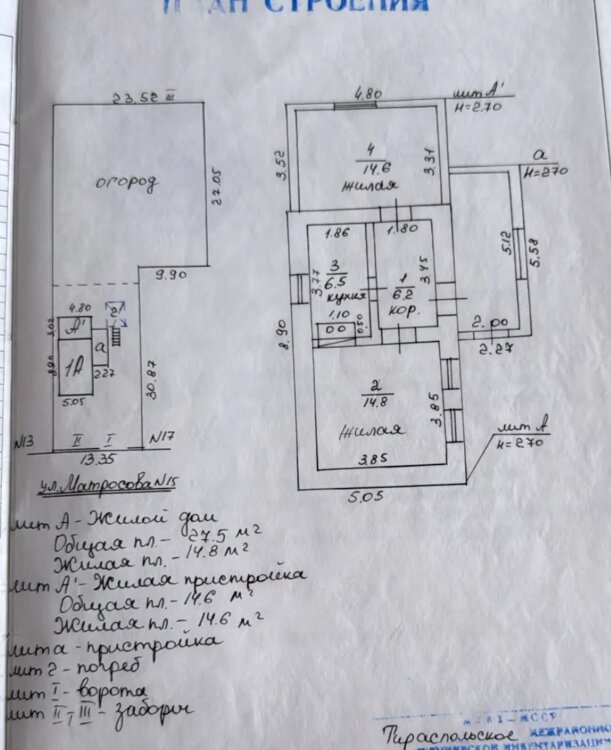 ПЛАН СТРОЕНИЯ
23.52 III
огород
27.05
9.90
4.80
А'
3.02
г
а
1А
8.90
2.27
5.05
30.87
N13
II
I
N17
13.35
ул. Матросова N15
4.80
лит А'
H=2.70
3.52
4
14.6
жилая
3.31
а
H=2.70
1.86
1.80
3
6.5
кухня
3.77
1
6.2
кор.
3.45
5.12
5.58
1.10
0.50
2.00
2.27
8.90
2
14.8
жилая
3.85
3.85
лит А
H=2.70
5.05
лит А - Жилой дом
Общая пл. - 27.5 м²
Жилая пл. - 14.8 м²
лит А' - Жилая пристройка
Общая пл. - 14.6 м²
Жилая пл. - 14.6 м²
лит а - пристройка
лит г - погреб
лит I - ворота
лит II, III - заборы
МЖКХ - МССР
Тираспольское МЕЖРАЙОННО
ИНВЕНТАРИЗАЦИИ